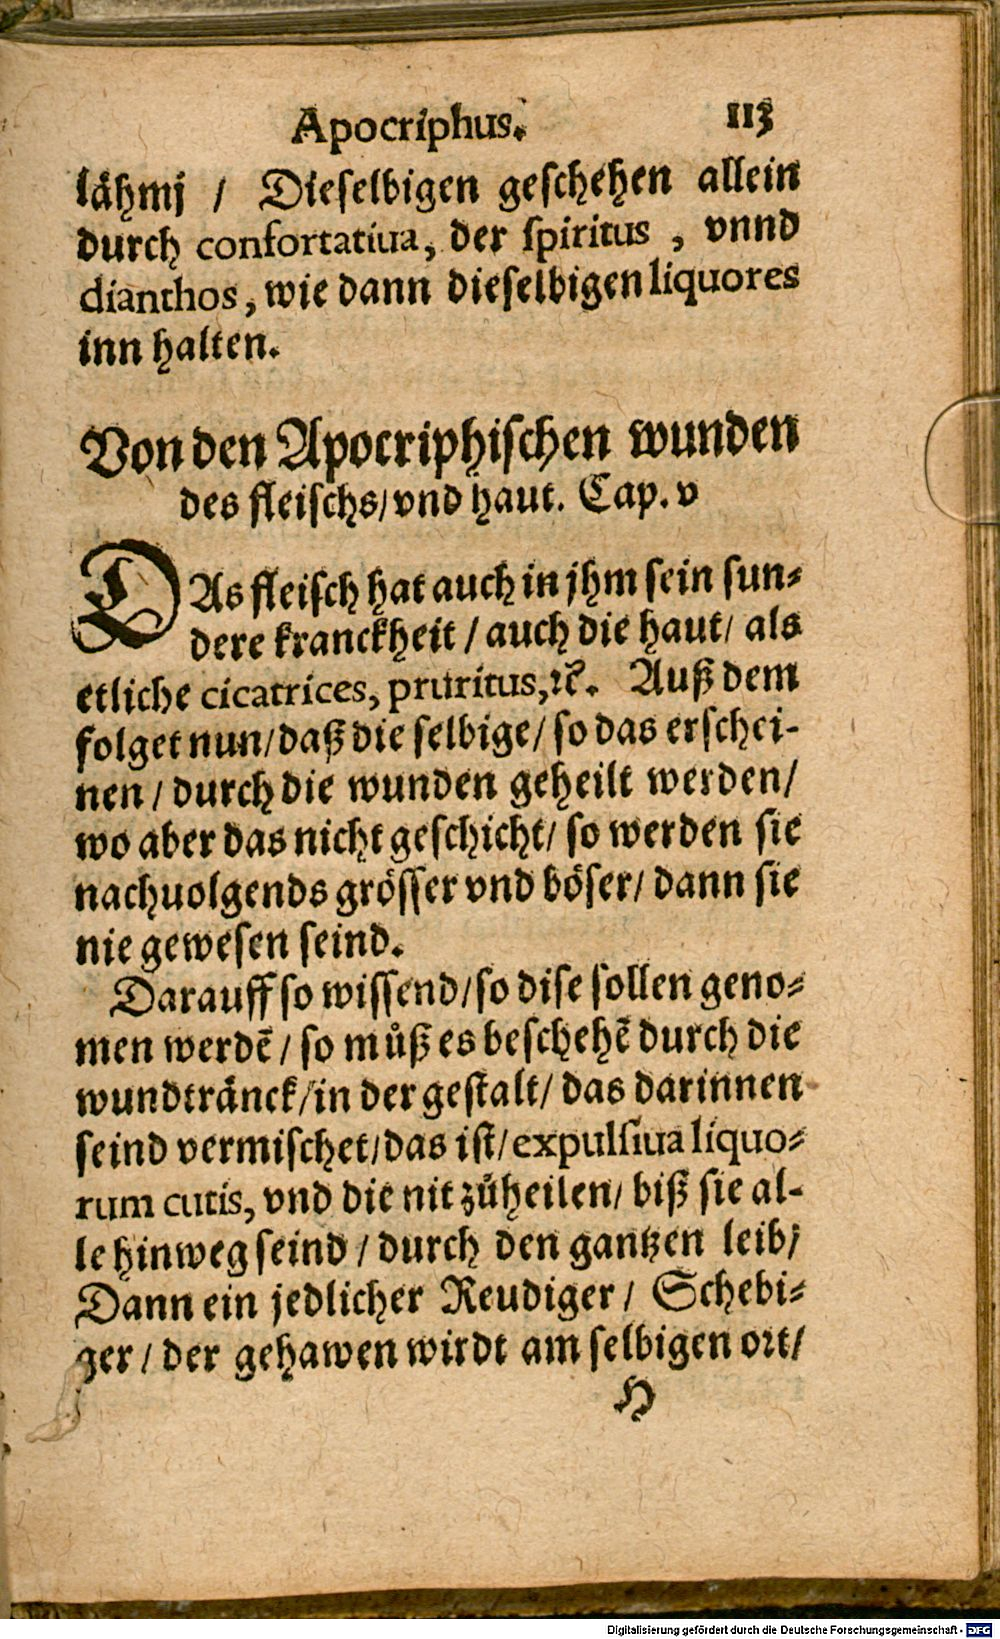 Apocriphus. 113
lähmj / Dieselbigen geschehen allein
durch confortatiua, der spiritus , vnnd
dianthos, wie dann dieselbigen liquores
inn halten.
Von den Apocriphischen wunden
des fleischs/ vnd haut. Cap. v
DAs fleisch hat auch in jhm sein sun-
dere kranckheit / auch die haut/ als
etliche cicatrices, pruritus, ⁊c̃. Auß dem
folget nun/ daß die selbige/ so das erschei-
nen / durch die wunden geheilt werden/
wo aber das nicht geschicht/ so werden sie
nachuolgends grösser vnd böser/ dann sie
nie gewesen seind.
Darauff so wissend/ so dise sollen geno-
men werdẽ / so můß es beschehẽ durch die
wundtränck/ in der gestalt/ das darinnen
seind vermischet/ das ist/ expulsiua liquo-
rum cutis, vnd die nit zůheilen/ biß sie al-
le hinweg seind / durch den gantzen leib/
Dann ein jedlicher Reudiger / Schebi-
ger / der gehawen wirdt am selbigen ort/
H
Digitalisierung gefördert durch die Deutsche Forschungsgemeinschaft - DFG